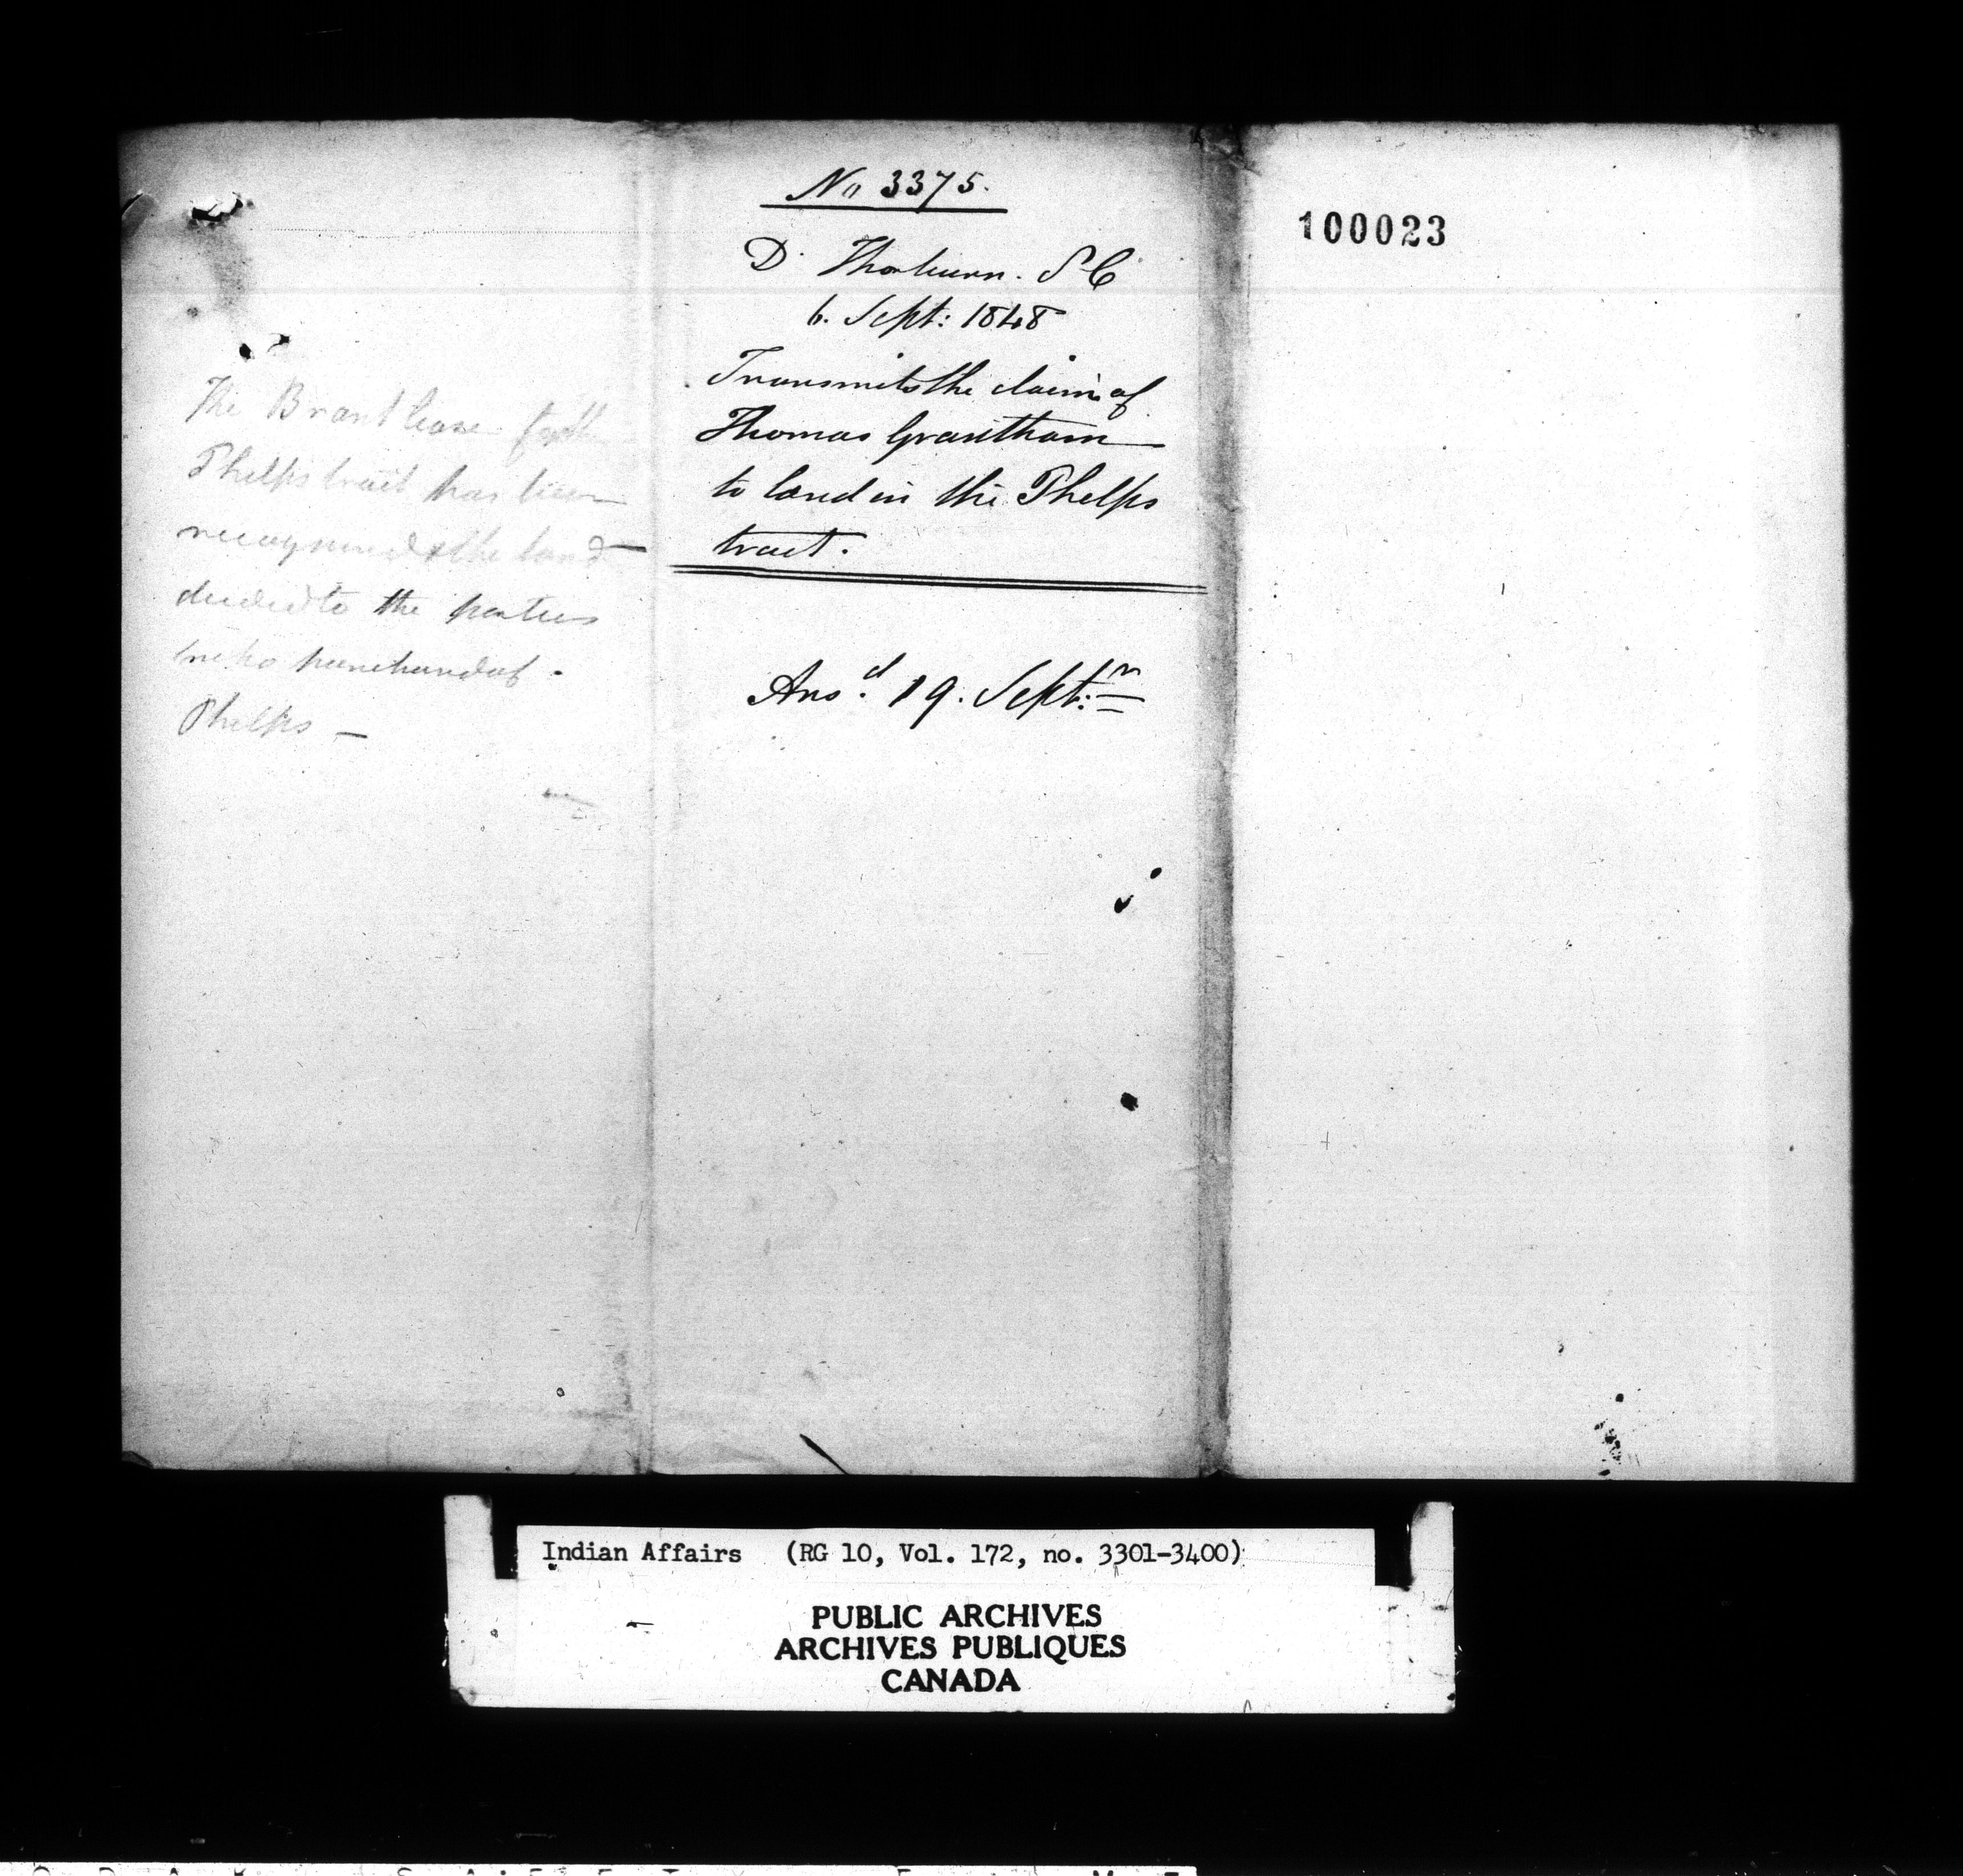 The Brant lease for the
Phelps tract has been
recognised & the land
deeded to the parties
who purchased of
Phelps —
No 3375.
D. Thorburn. S C
6. Sept: 1848
Transmits the claim of
Thomas Grantham
to land in the Phelps
tract.
Ansd. 19. Sept:r
100023
Indian Affairs (RG 10, Vol. 172, no. 3301-3400)
PUBLIC ARCHIVES
ARCHIVES PUBLIQUES
CANADA